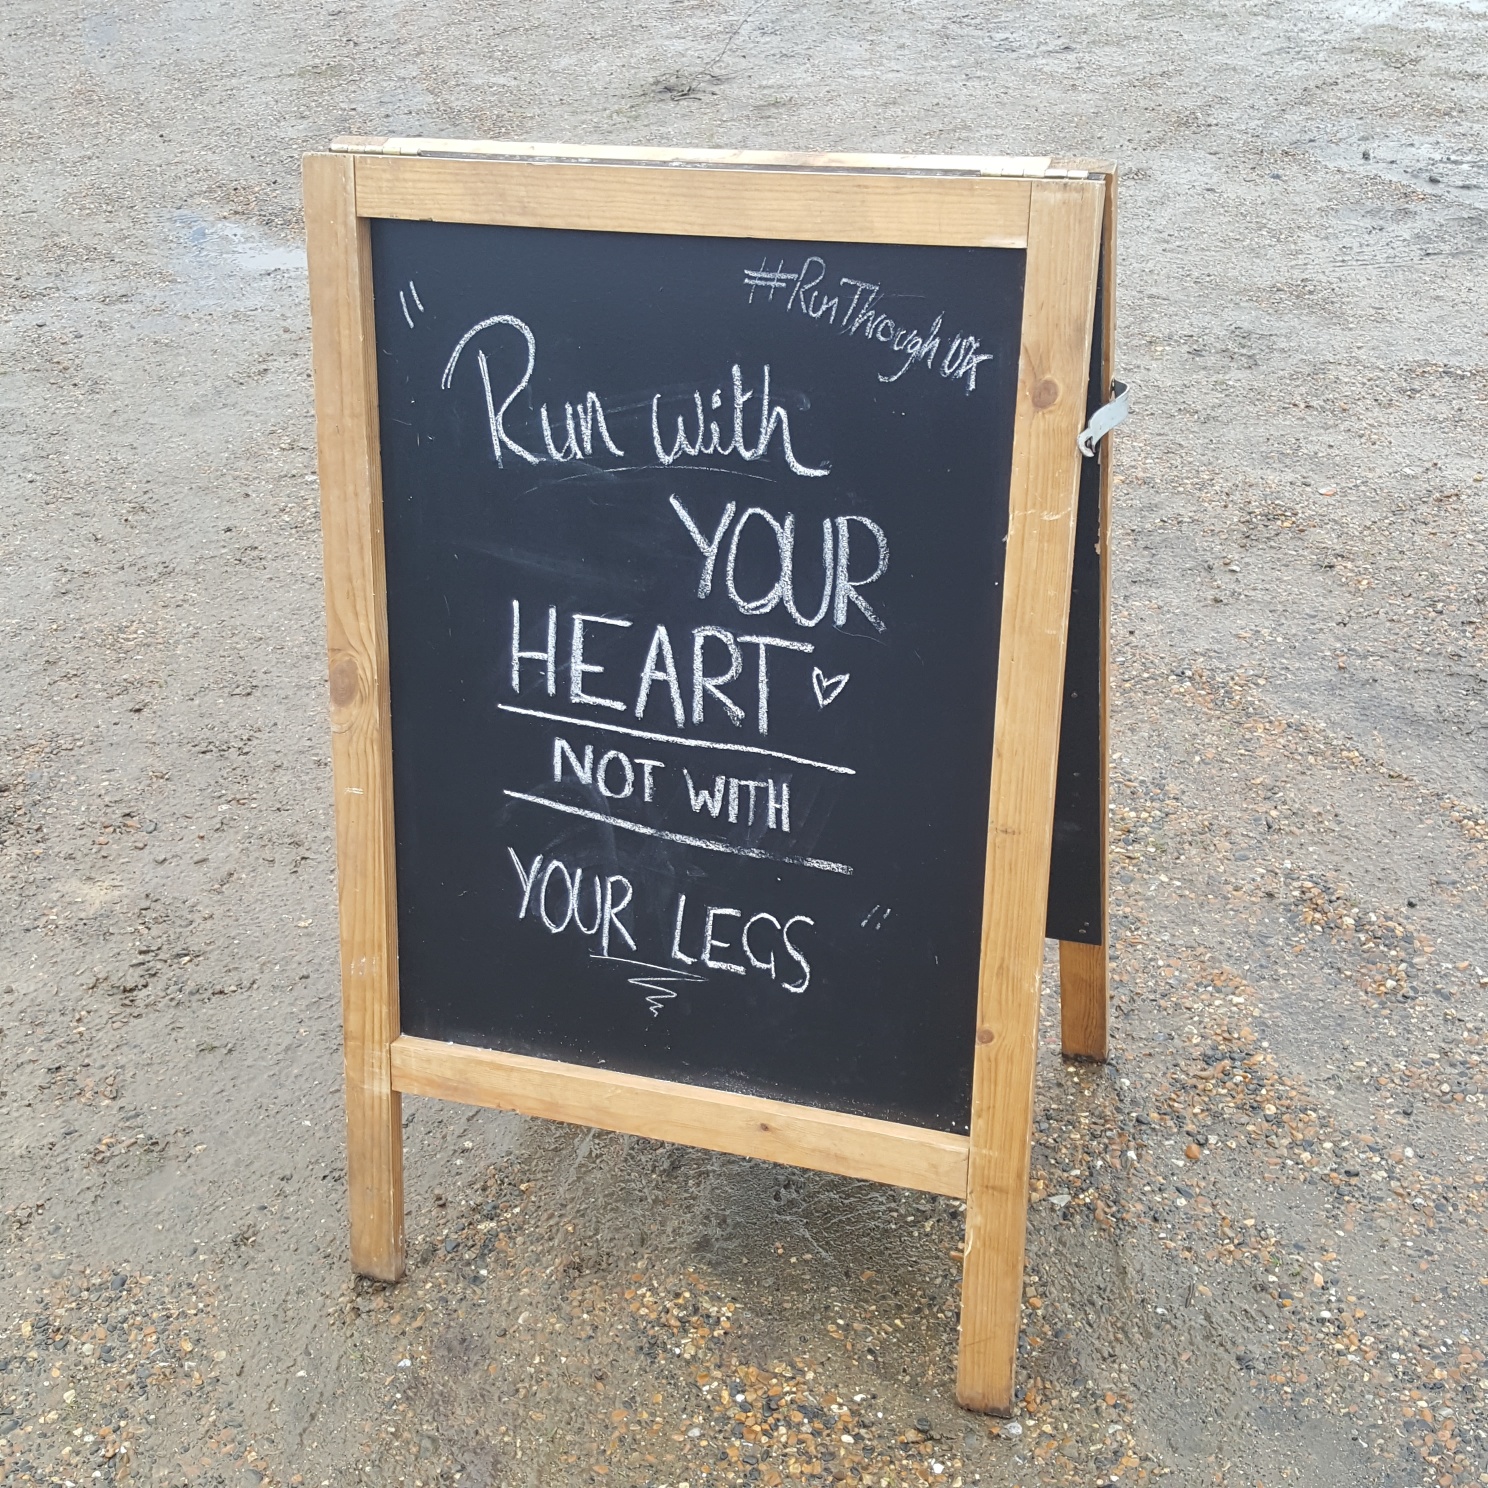 #RunThrough UK
"Run with
YOUR
HEART
NOT WITH
YOUR LEGS"